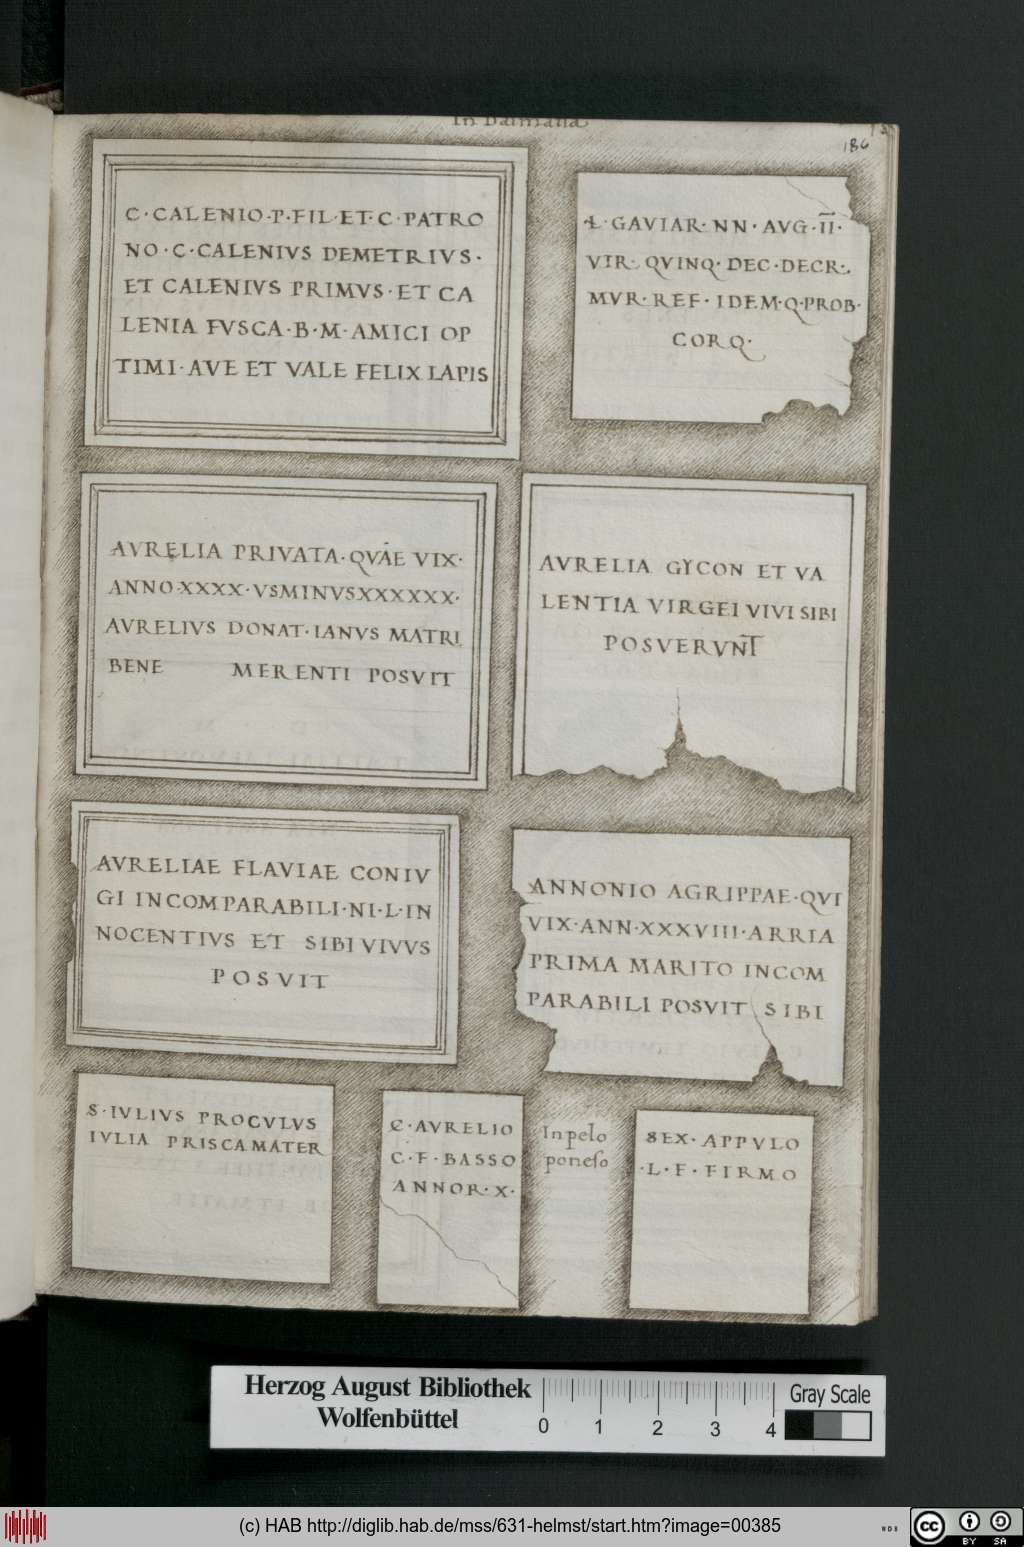 In Dalmatia
186
C·CALENIO·P·FIL·ET·C·PATRO
NO·C·CALENIVS DEMETRIVS·
ET CALENIVS PRIMVS·ET CA
LENIA FVSCA·B·M·AMICI OP
TIMI·AVE ET VALE FELIX LAPIS
L·GAVIAR·NN·AVG·II·
VIR·QVINQ·DEC·DECR·
MVR·REF·IDEM·Q·PROB·
CORQ·
AVRELIA PRIVATA·QVAE VIX·
ANNO·XXXX·VSMINVSXXXXXX·
AVRELIVS DONAT·IANVS MATRI
BENE MERENTI POSVIT
AVRELIA GYCON ET VA
LENTIA VIRGEI VIVI SIBI
POSVERVNT
AVRELIAE FLAVIAE CONIV
GI INCOMPARABILI·NI·L·IN
NOCENTIVS ET SIBI VIVVS
POSVIT
ANNONIO AGRIPPAE·QVI
VIX·ANN·XXXVIII·ARRIA
PRIMA MARITO INCOM
PARABILI POSVIT SIBI
S·IVLIVS PROCVLVS
IVLIA PRISCA MATER
C·AVRELIO
C·F·BASSO
ANNOR·X·
In pelo
poneso
SEX·APPVLO
·L·F·FIRMO
Herzog August Bibliothek
Wolfenbüttel
0 1 2 3 4
Gray Scale
(c) HAB http://diglib.hab.de/mss/631-helmst/start.htm?image=00385
WDB
cc BY SA